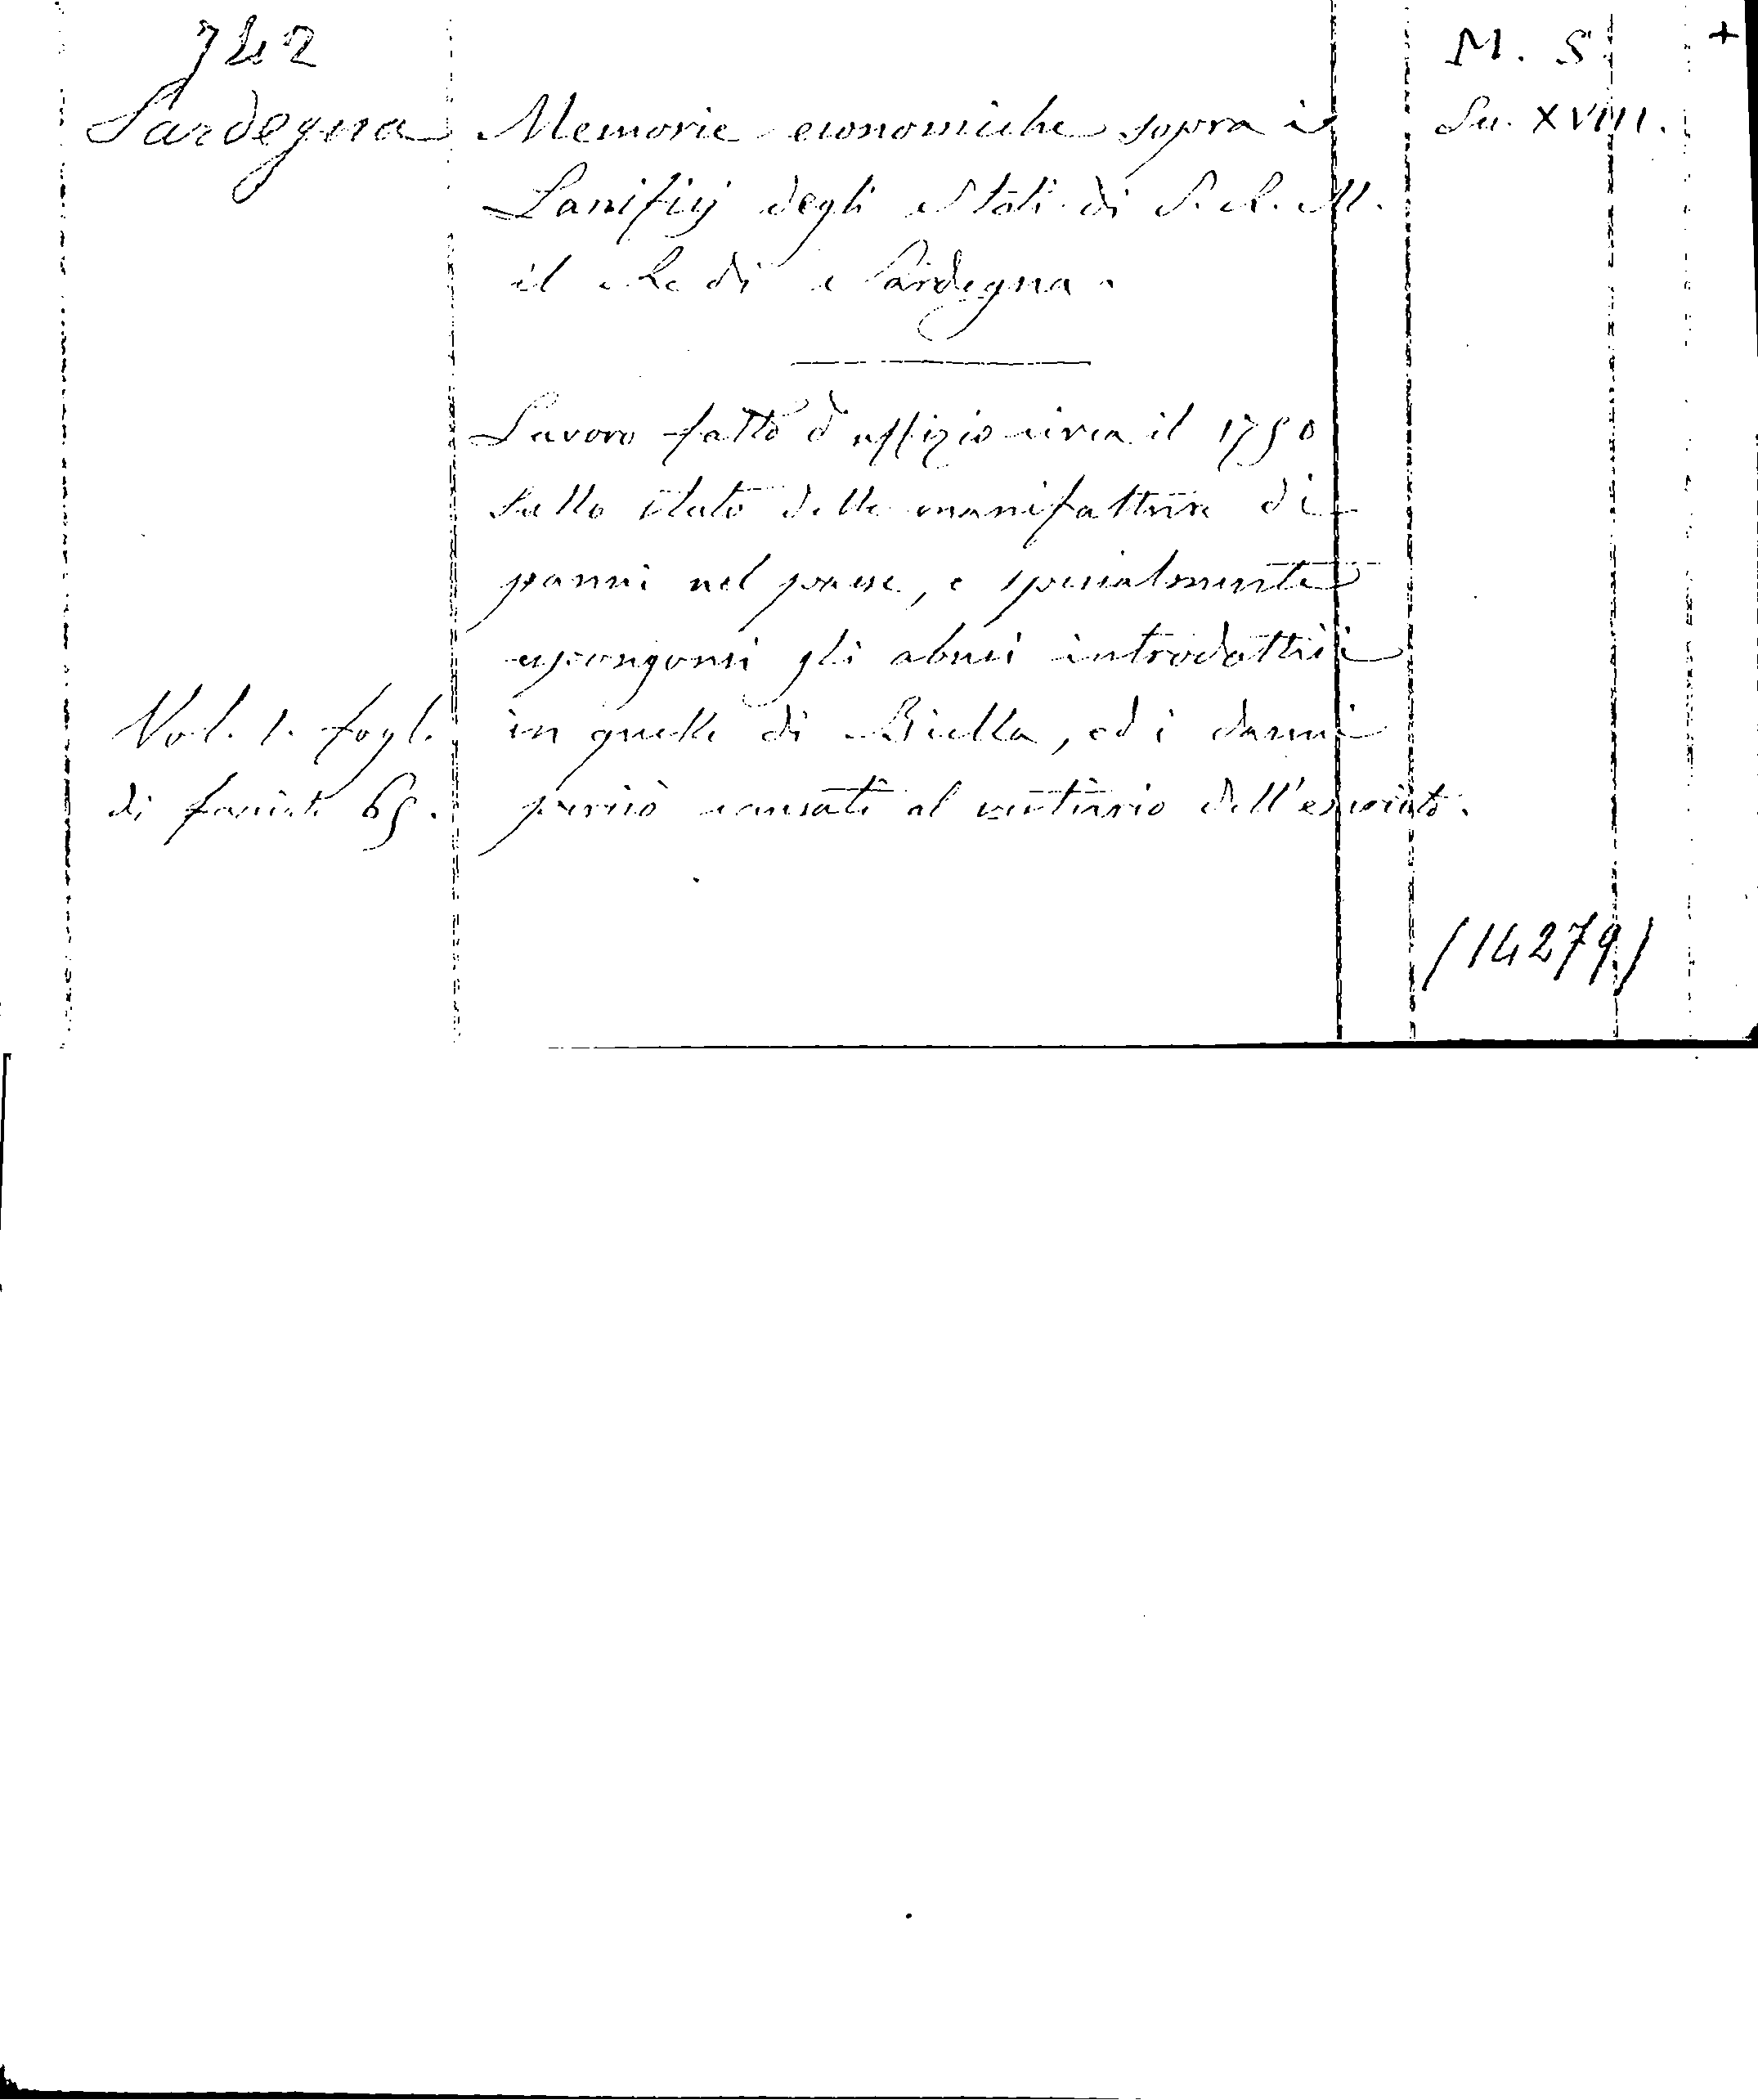 742
M. S. +
Sardegna
Memorie economiche sopra i
Sec. XVIII.
Lanificj degli Stati di S. R. M.
il Re di Sardegna.
Lavoro fatto d'uffizio circa il 1750
sullo stato delle manifatture di
panni nel paese, e specialmente
espongonsi gli abusi introdottisi
Vol. 1. fogl.
in quelle di Biella, ed i danni
di facciate 65.
perciò causati al vestiario dell'esercito.
(14279)